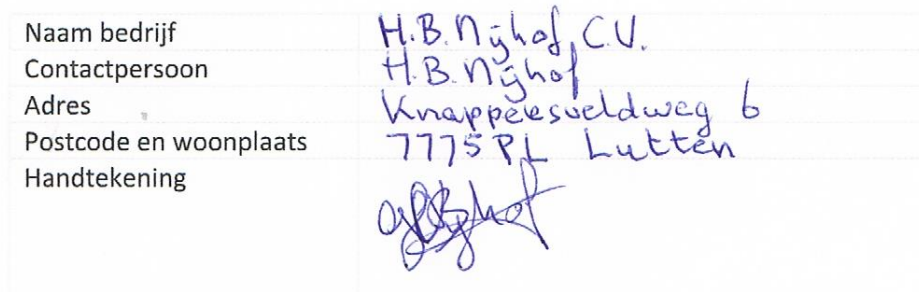 Naam bedrijf H.B. Nijhof C.V.
Contactpersoon H.B. Nijhof
Adres Knappersveldweg 6
Postcode en woonplaats 7775 PL Lutten
Handtekening